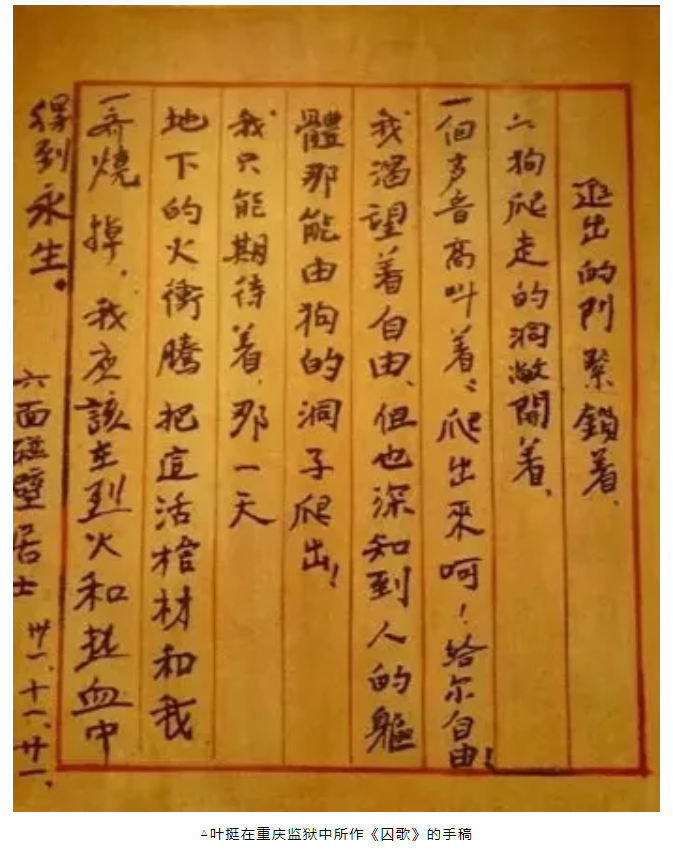 進出的门緊鎖着、
为狗爬走的洞敞開着、
一個声音高叫着：爬出來呵！給尔自由！
我渴望着自由、但也深知到人的軀
體那能由狗的洞子爬出！
我只能期待着、那一天
地下的火衝騰把這活棺材和我
一齊燒掉，我应該在烈火和热血中
得到永生。
六面碰壁居士 卅一、十一、廿一、
△叶挺在重庆监狱中所作《囚歌》的手稿